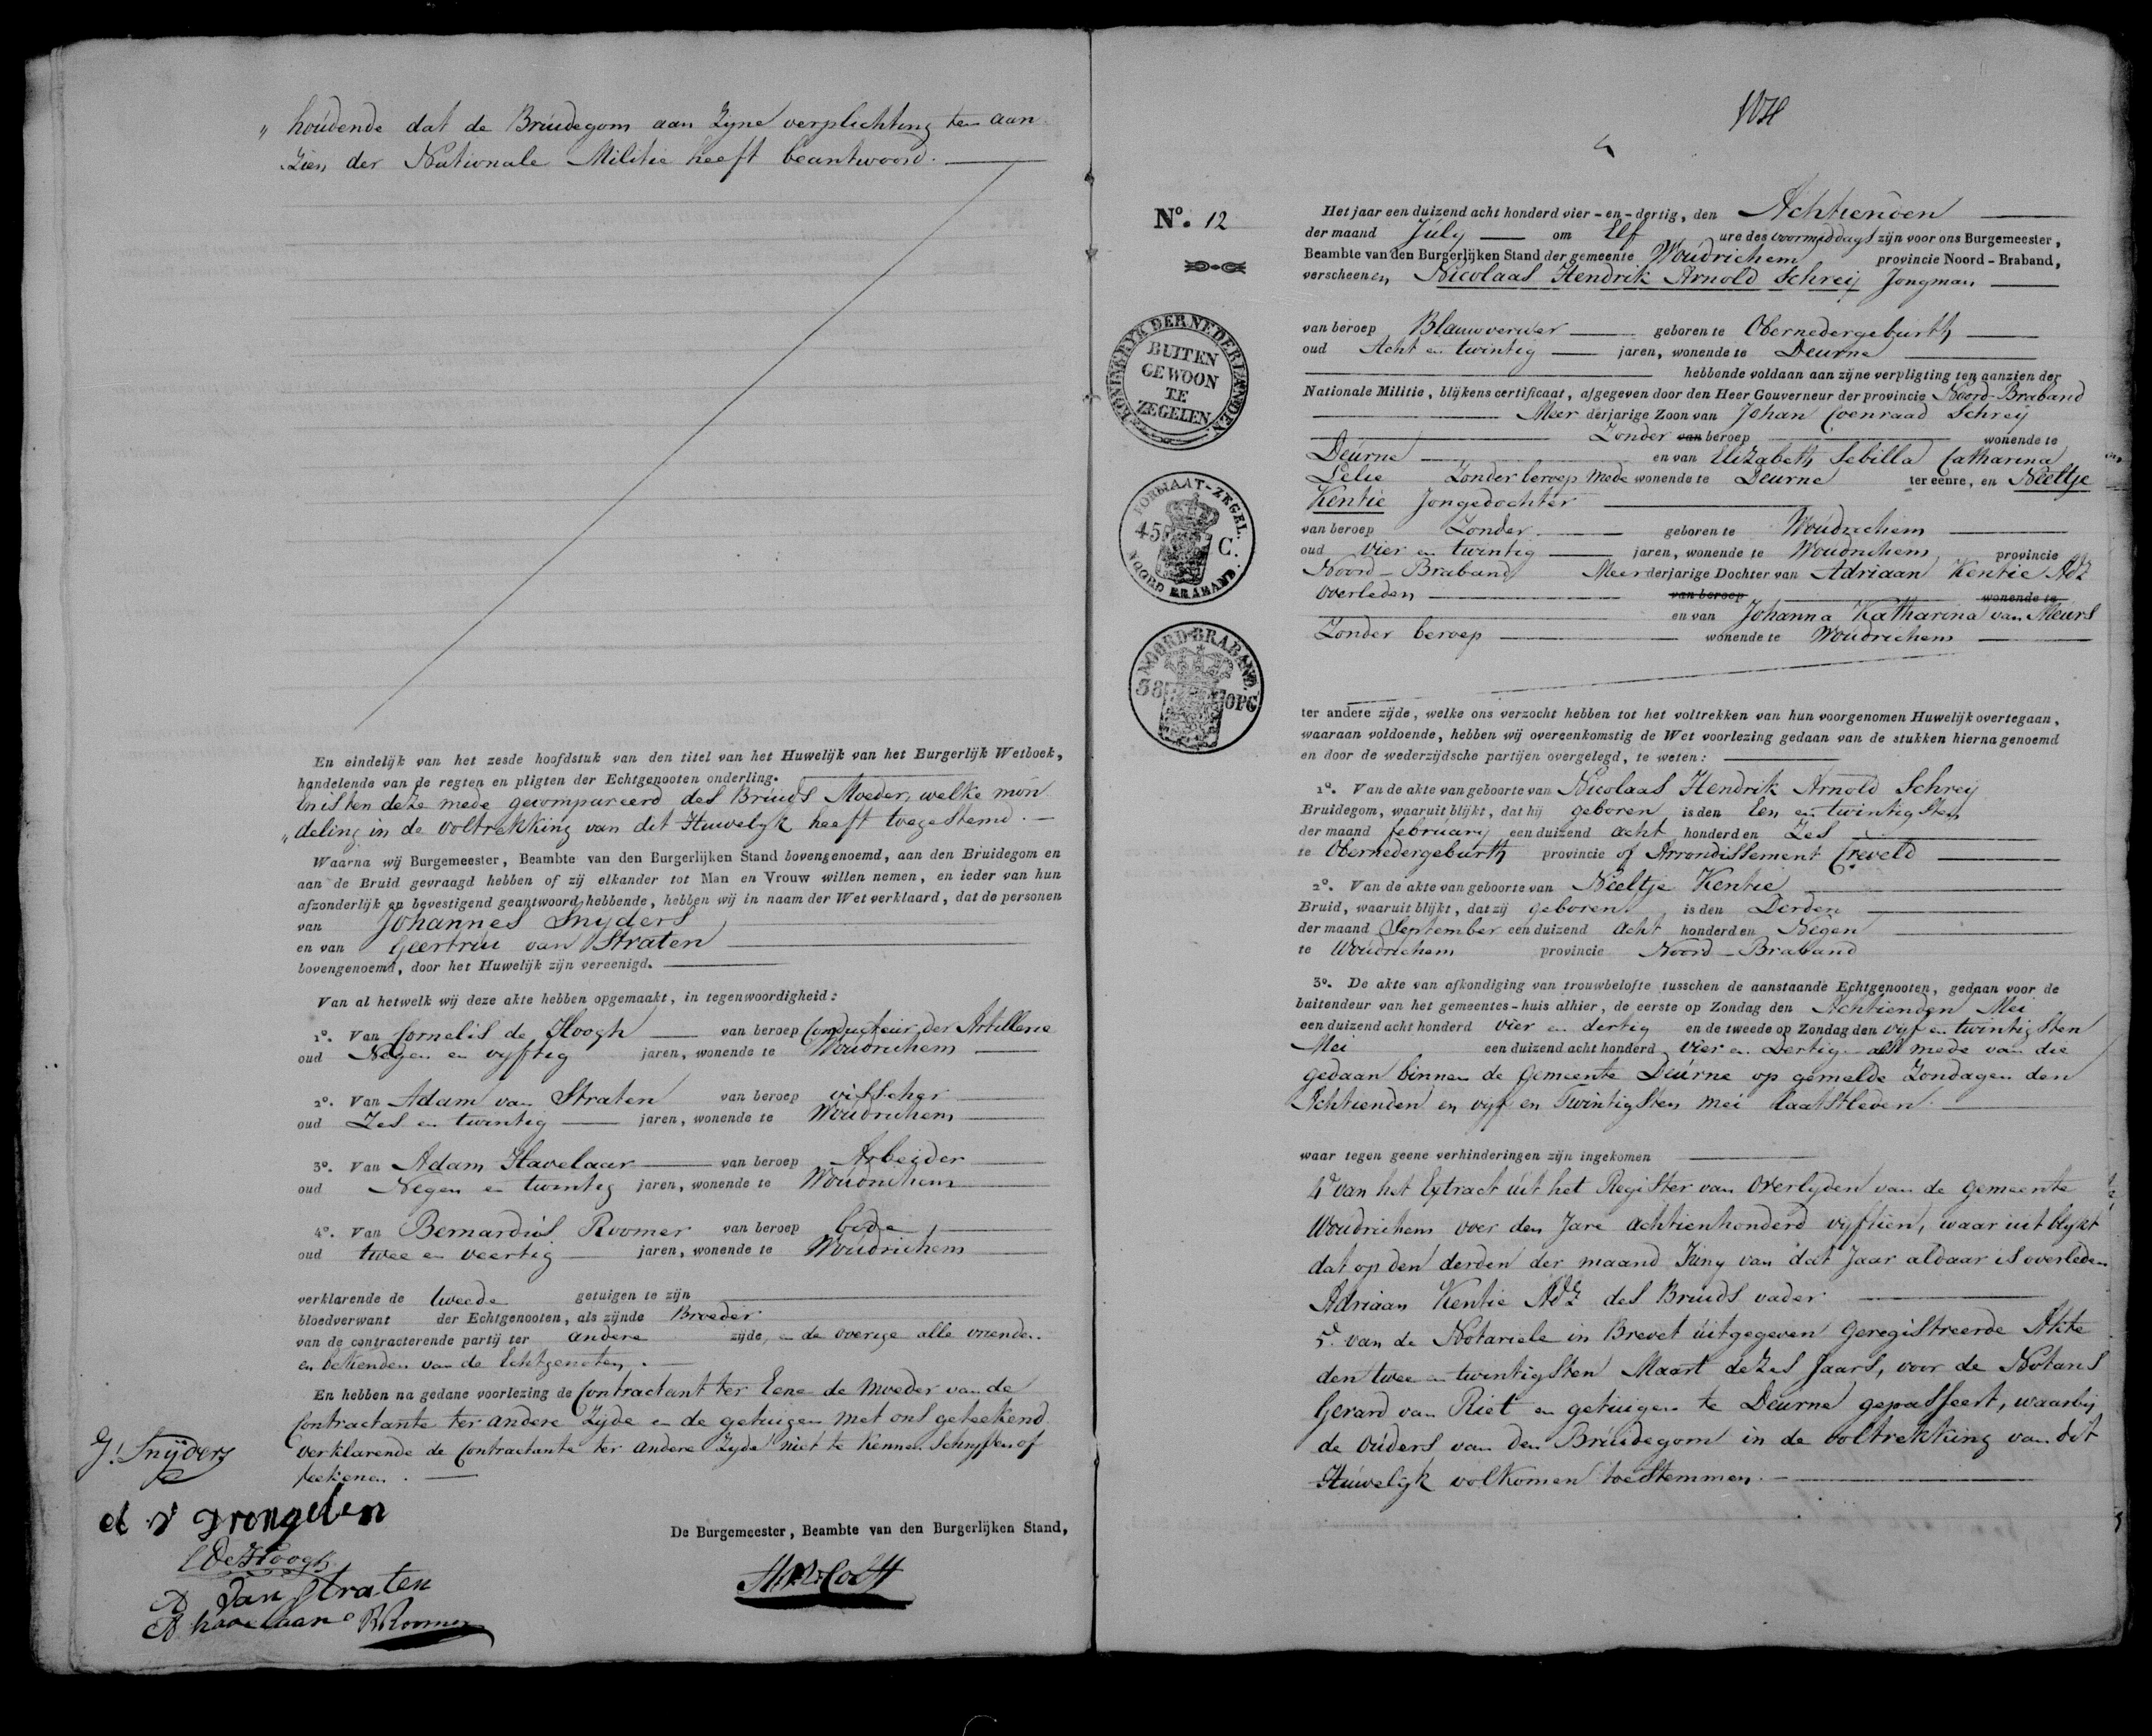 „ houdende dat de Bruidegom aan Zyne verplichting ten aan-
„ Zien der Nationale Militie heeft beantwoord.
En eindelijk van het zesde hoofdstuk van den titel van het Huwelijk van het Burgerlijk Wetboek,
handelende van de regten en pligten der Echtgenooten onderling.
ten deze mede gecompareerd des Bruids Moeder, welke mon
„ deling in de voltrekking van dit Huwelyk heeft toegestemd.
Waarna wij Burgemeester, Beambte van den Burgerlijken Stand bovengenoemd, aan den Bruidegom en
aan de Bruid gevraagd hebben of zij elkander tot Man en Vrouw willen nemen, en ieder van hun
afzonderlijk en bevestigend geantwoord hebbende, hebben wij in naam der Wet verklaard, dat de personen
van Johannes Snyders
en van Geertrui van Straten
bovengenoemd, door het Huwelijk zijn vereenigd.
Van al hetwelk wij deze akte hebben opgemaakt, in tegenwoordigheid:
1º. Van Cornelis de Hoogh van beroep Conducteur der Artillerie
oud Negen en vyftig jaren, wonende te Woudrichem
2º. Van Adam van Straten van beroep visscher
oud Zes en twintig jaren, wonende te Woudrichem
3º. Van Adam Havelaar van beroep Arbeider
oud Negen en twintig jaren, wonende te Woudrichem
4º. Van Bernardus Roomer van beroep bode
oud twee en veertig jaren, wonende te Woudrichem
verklarende de tweede getuigen te zijn
bloedverwant der Echtgenooten, als zijnde Broeder
van de contracterende partij ter andere zijde, en de overige alle vrienden
en bekenden van de Echtgenoten.
En hebben na gedane voorlezing de Contractant ter Eene de Moeder van de
Contractante ter andere Zyde en de getuigen met ons geteekend
verklarende de Contractante ter andere Zyde niet te kennen Schryffen of
teekenen.
J. Snijders
d v Drongelen
C De Hoogh
De Burgemeester, Beambte van den Burgerlijken Stand,
A van Straten
A havelaar B Roomer
N
5
Nº. 12
Het jaar een duizend acht honderd vier-en-dertig, den Achtienden
der maand July om Elf ure des voormiddags zijn voor ons Burgemeester,
Beambte van den Burgerlijken Stand der gemeente Woudrichem provincie Noord-Braband,
verscheenen, Nicolaas Hendrik Arnold Schreij Jongman
van beroep Blauwverwer geboren te Obernedergeburth
oud Acht en twintig jaren, wonende te Deurne
hebbende voldaan aan zijne verpligting ten aanzien der
Nationale Militie, blijkens certificaat, afgegeven door den Heer Gouverneur der provincie Noord-Braband
Meer derjarige Zoon van Johan Coenraad Schreij
Zonder van beroep wonende te
Deurne en van Elizabeth Sebilla Catharina
Lelie Zonder beroep mede wonende te Deurne ter eenre, en Neeltje
Kentie Jongedochter
van beroep Zonder geboren te Woudrichem
oud vier en twintig jaren, wonende te Woudrichem provincie
Noord-Braband Meerderjarige Dochter van Adriaan Kentie Adz
overleden van beroep wonende te
en van Johanna Katharina van Meurs
Zonder beroep wonende te Woudrichem
KONINKRYK DER NEDERLANDEN.
BUITEN
GEWOON
TE
ZEGELEN
FORMAAT-ZEGEL.
45 C.
NOORD BRABAND.
NOORD-BRABAND.
38 OPC
ter andere zijde, welke ons verzocht hebben tot het voltrekken van hun voorgenomen Huwelijk overtegaan,
waaraan voldoende, hebben wij overeenkomstig de Wet voorlezing gedaan van de stukken hierna genoemd
en door de wederzijdsche partijen overgelegd, te weten:
1º. Van de akte van geboorte van Nicolaas Hendrik Arnold Schreij
Bruidegom, waaruit blijkt, dat hij geboren is den Een en twintigsten
der maand february een duizend acht honderd en Zes
te Obernedergeburth provincie of Arrondissement Creveld
2º. Van de akte van geboorte van Neeltje Kentie
Bruid, waaruit blijkt, dat zij geboren is den Derden
der maand September een duizend acht honderd en Negen
te Woudrichem provincie Noord-Braband
3º. De akte van afkondiging van trouwbelofte tusschen de aanstaande Echtgenooten, gedaan voor de
buitendeur van het gemeentes-huis alhier, de eerste op Zondag den Achtienden Mei
een duizend acht honderd vier en dertig en de tweede op Zondag den vijf en twintigsten
Mei een duizend acht honderd vier en Dertig als mede van die
gedaan binnen de gemeente Deurne op gemelde Zondagen den
Achtienden en vyf en Twintigsten mei laatstleden.
waar tegen geene verhinderingen zijn ingekomen
4º van het Extract uit het Register van Overlyden van de gemeente
Woudrichem voor den Jare achtienhonderd vijftien, waar uit blykt
dat op den derden der maand Juny van dat Jaar aldaar is overleden
Adriaan Kentie Adz des Bruids vader
5º van de Notariele in Brevet uitgegeven Geregistreerde Akte
den twee en twintigsten Maart dezes Jaars, voor de Notaris
Gerard van Riet en getuigen te Deurne gepasseert, waarby
de ouders van den Bruidegom in de voltrekking van dit
Huwelyk volkomen toestemmen.